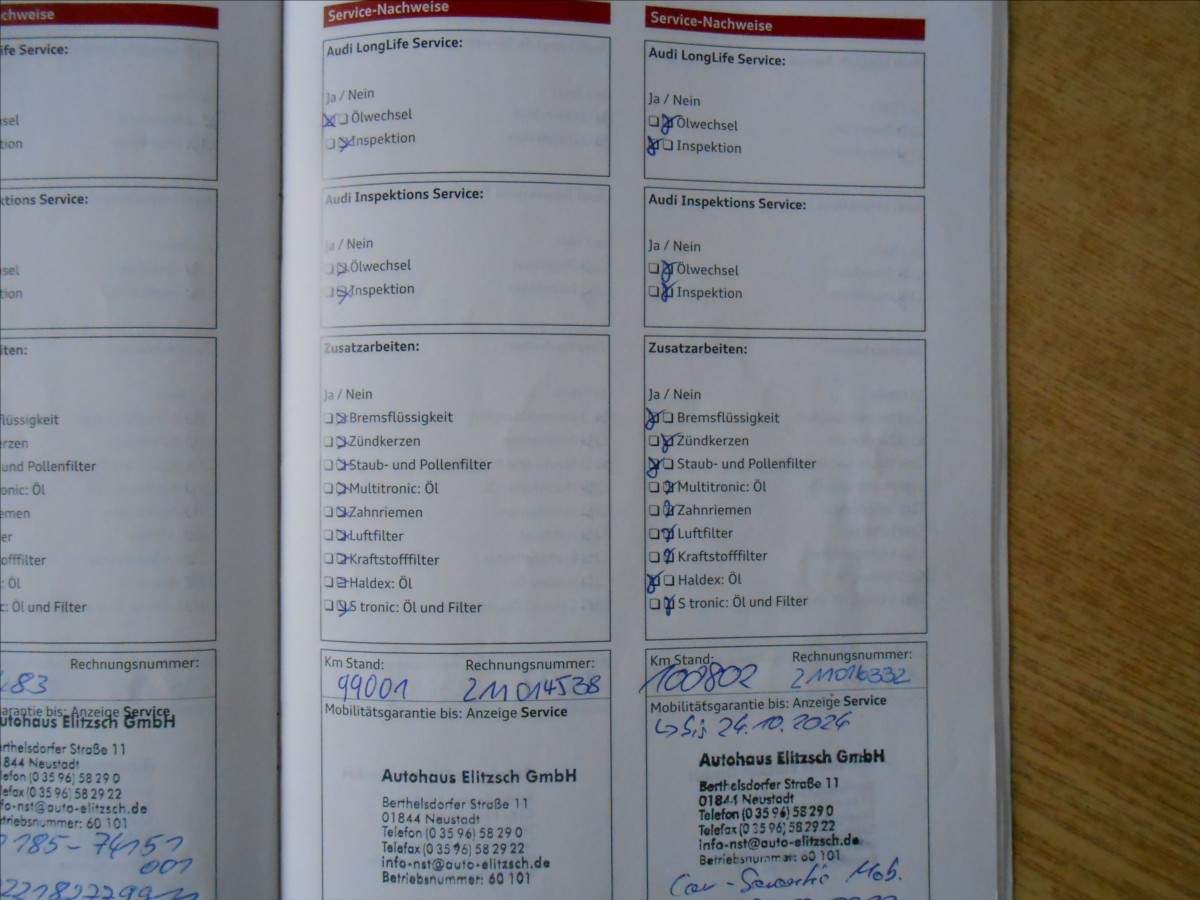 chweise
ife Service:
sel
tion
ktions Service:
sel
tion
iten:
flüssigkeit
erzen
und Pollenfilter
onic: Öl
emen
er
offfilter
: Öl
c: Öl und Filter
Rechnungsnummer:
483
garantie bis: Anzeige Service
utohaus Elitzsch GmbH
erthelsdorfer Straße 11
1844 Neustadt
lefon (0 35 96) 58 29 0
lefax (0 35 96) 58 29 22
fo-nst@auto-elitzsch.de
triebsnummer: 60 101
185-74151
001
Service-Nachweise
Audi LongLife Service:
Ja / Nein
Ölwechsel
Inspektion
Audi Inspektions Service:
Ja / Nein
Ölwechsel
Inspektion
Zusatzarbeiten:
Ja / Nein
Bremsflüssigkeit
Zündkerzen
Staub- und Pollenfilter
Multitronic: Öl
Zahnriemen
Luftfilter
Kraftstofffilter
Haldex: Öl
S tronic: Öl und Filter
Km Stand: Rechnungsnummer:
99001 211014538
Mobilitätsgarantie bis: Anzeige Service
Autohaus Elitzsch GmbH
Berthelsdorfer Straße 11
01844 Neustadt
Telefon (0 35 96) 58 29 0
Telefax (0 35 96) 58 29 22
info-nst@auto-elitzsch.de
Betriebsnummer: 60 101
Service-Nachweise
Audi LongLife Service:
Ja / Nein
Ölwechsel
Inspektion
Audi Inspektions Service:
Ja / Nein
Ölwechsel
Inspektion
Zusatzarbeiten:
Ja / Nein
Bremsflüssigkeit
Zündkerzen
Staub- und Pollenfilter
Multitronic: Öl
Zahnriemen
Luftfilter
Kraftstofffilter
Haldex: Öl
S tronic: Öl und Filter
Km Stand: Rechnungsnummer:
100802 211016332
Mobilitätsgarantie bis: Anzeige Service
↳ bis 24.10.2024
Autohaus Elitzsch GmbH
Berthelsdorfer Straße 11
01844 Neustadt
Telefon (0 35 96) 58 29 0
Telefax (0 35 96) 58 29 22
info-nst@auto-elitzsch.de
Betriebsnummer: 60 101
Car-Garantie Mob.